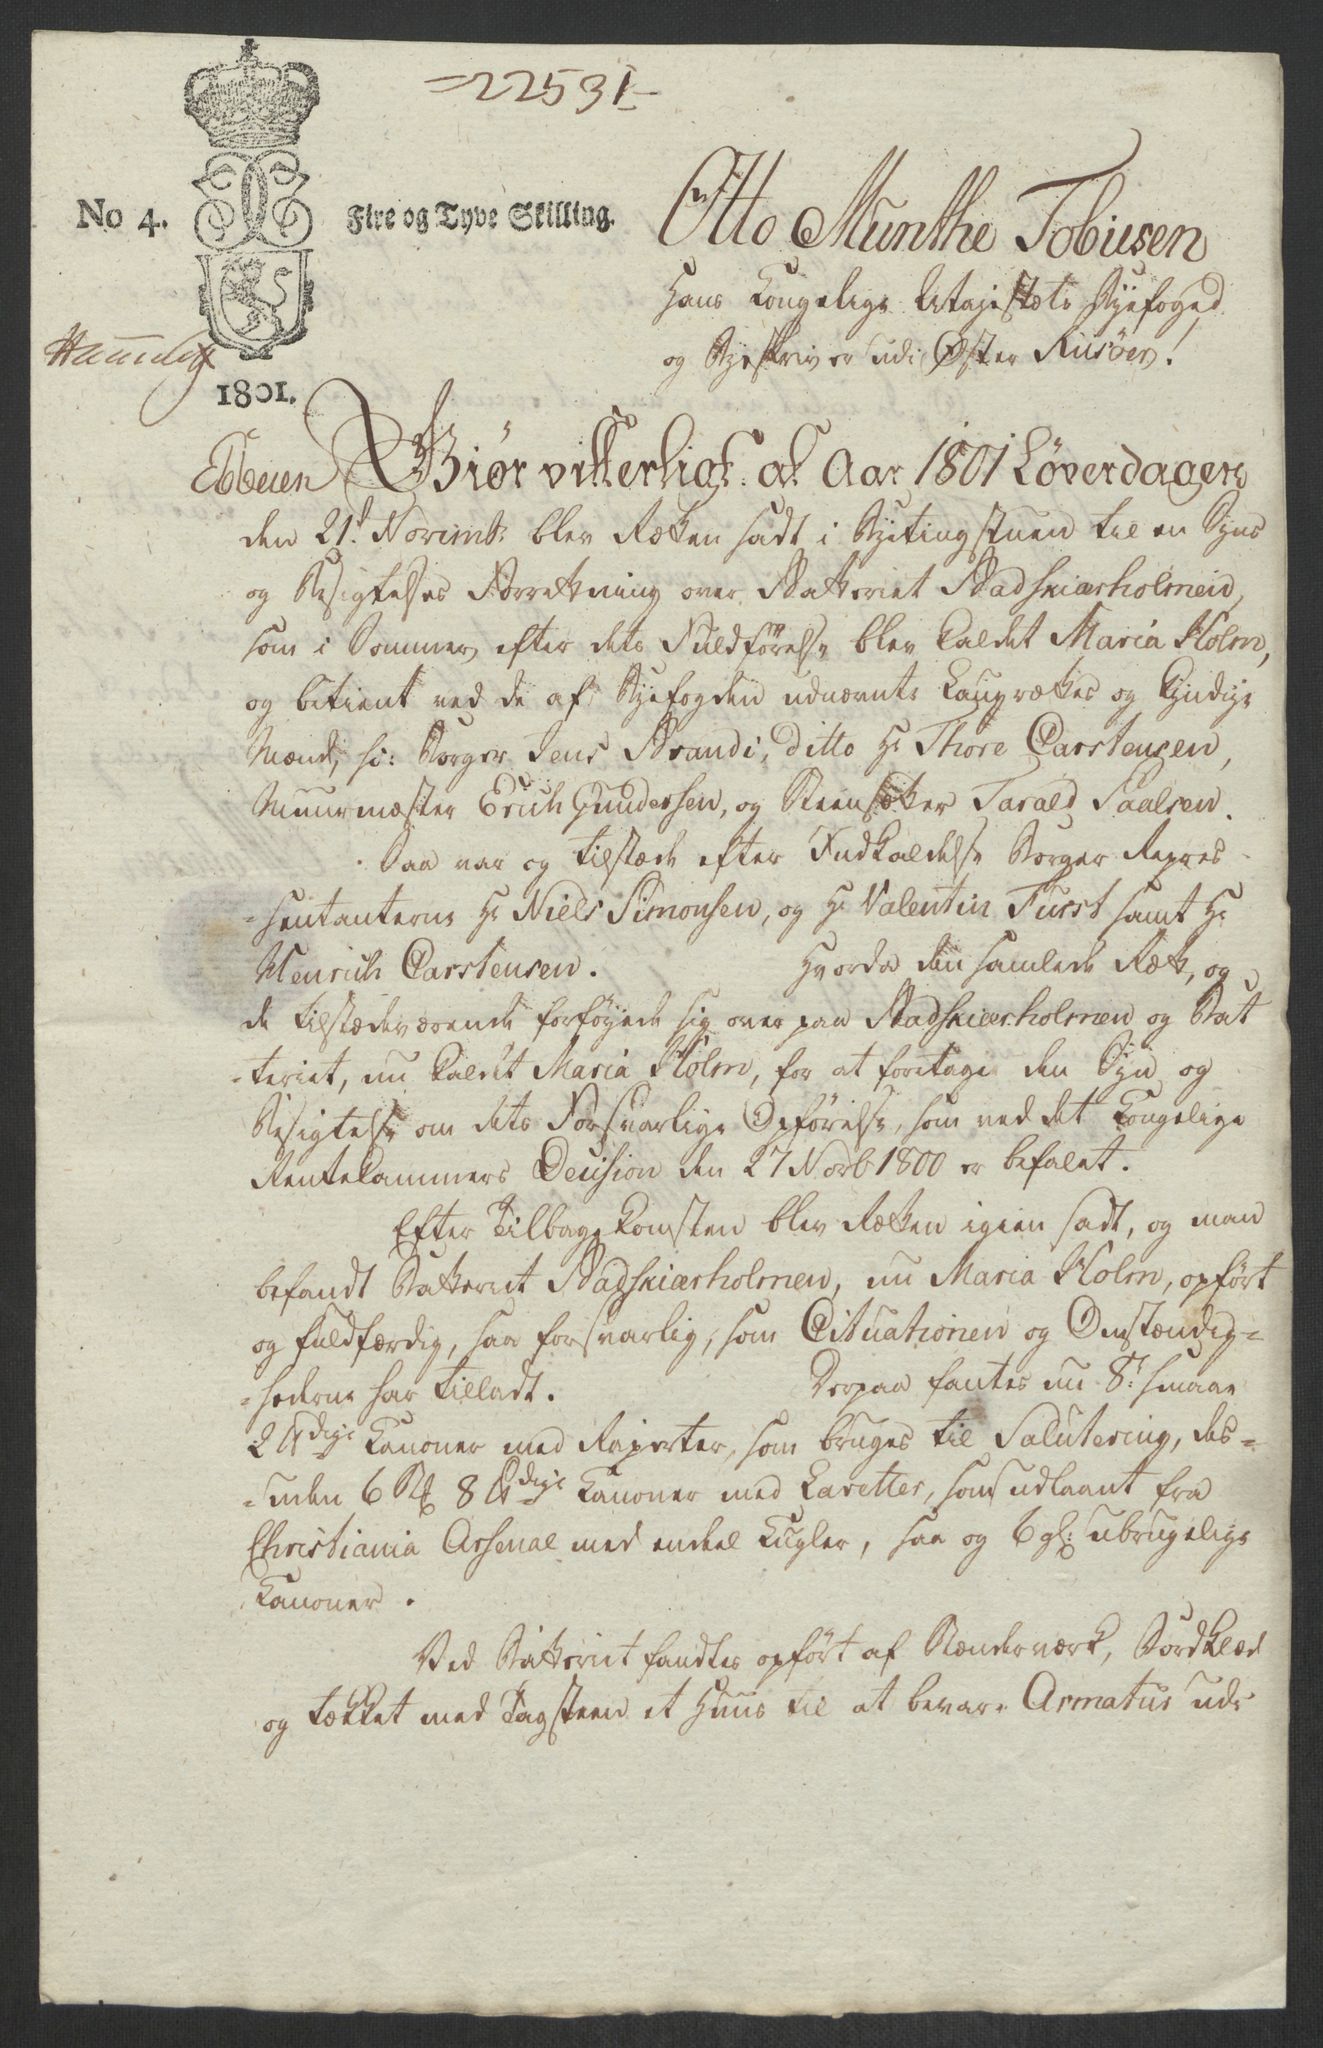 =22531-
No 4. Fire og Tyve Skilling.
1801.
Otto Munthe Tobiesen
Hans Kongelige Majestæts Byefoged
og Byeskriver udi Øster Riisöer!
Ebbesen
Giör vitterligt at Aar 1801 Løverdagen
den 21.d Novemb: blev Retten sadt i Byetingstuen til en Syns
og Besigtelses Forretning over Batteriet Stadskiærholmen,
som i Sommer efter dets Fuldförelse blev kaldet Maria Holm,
og betient ved de af Byefogden udnævnte Laugrettes og kyndige
Mænd, Hr: Borger Jens Brandi, ditto Hr Thore Carstensen,
Muurmæster Erich Gundersen, og Steensætter Tarald Saalsen.
Saa var og tilstæde efter Indkaldelse Borger Repræ-
-sentanterne Hr Niels Simonsen, og Hr Valentin Furst samt Hr
Henrich Carstensen. Hvorda den samlede Ret, og
de tilstædeværende forföyede sig over paa Stadskiærholmen og Bat
-teriet, nu kaldet Maria Holm, for at foretage den Syn og
Besigtelse om dets Forsvarlige Opförelse, som ved det Kongelige
Rentekammers Decision den 27 Novb 1800 er befalet.
Efter Tilbagekomsten blev Retten igien sadt, og man
befandt Batteriet Stadskiærholmen, nu Maria Holm, opfört
og fuldfærdig, saa forsvarlig, som Cituationen og Omstændig=
=hederne har tilladt. Derpaa fantes nu 8t: smaae
2 ℔dige Kanoner med Raperter, som bruges til Salutering, des=
=uden 6 St 8 ℔dige Kanoner med Lavetter, som udlaant fra
Christiania Arsenal med endeel Kugler, saa og 6 gl: ubrugelige
Kanoner.
Ved Batteriet fandtes opfört af Bindeverk, Bordklæd
og tækket med Tagsteen et Huus til at bevare Armatur udi